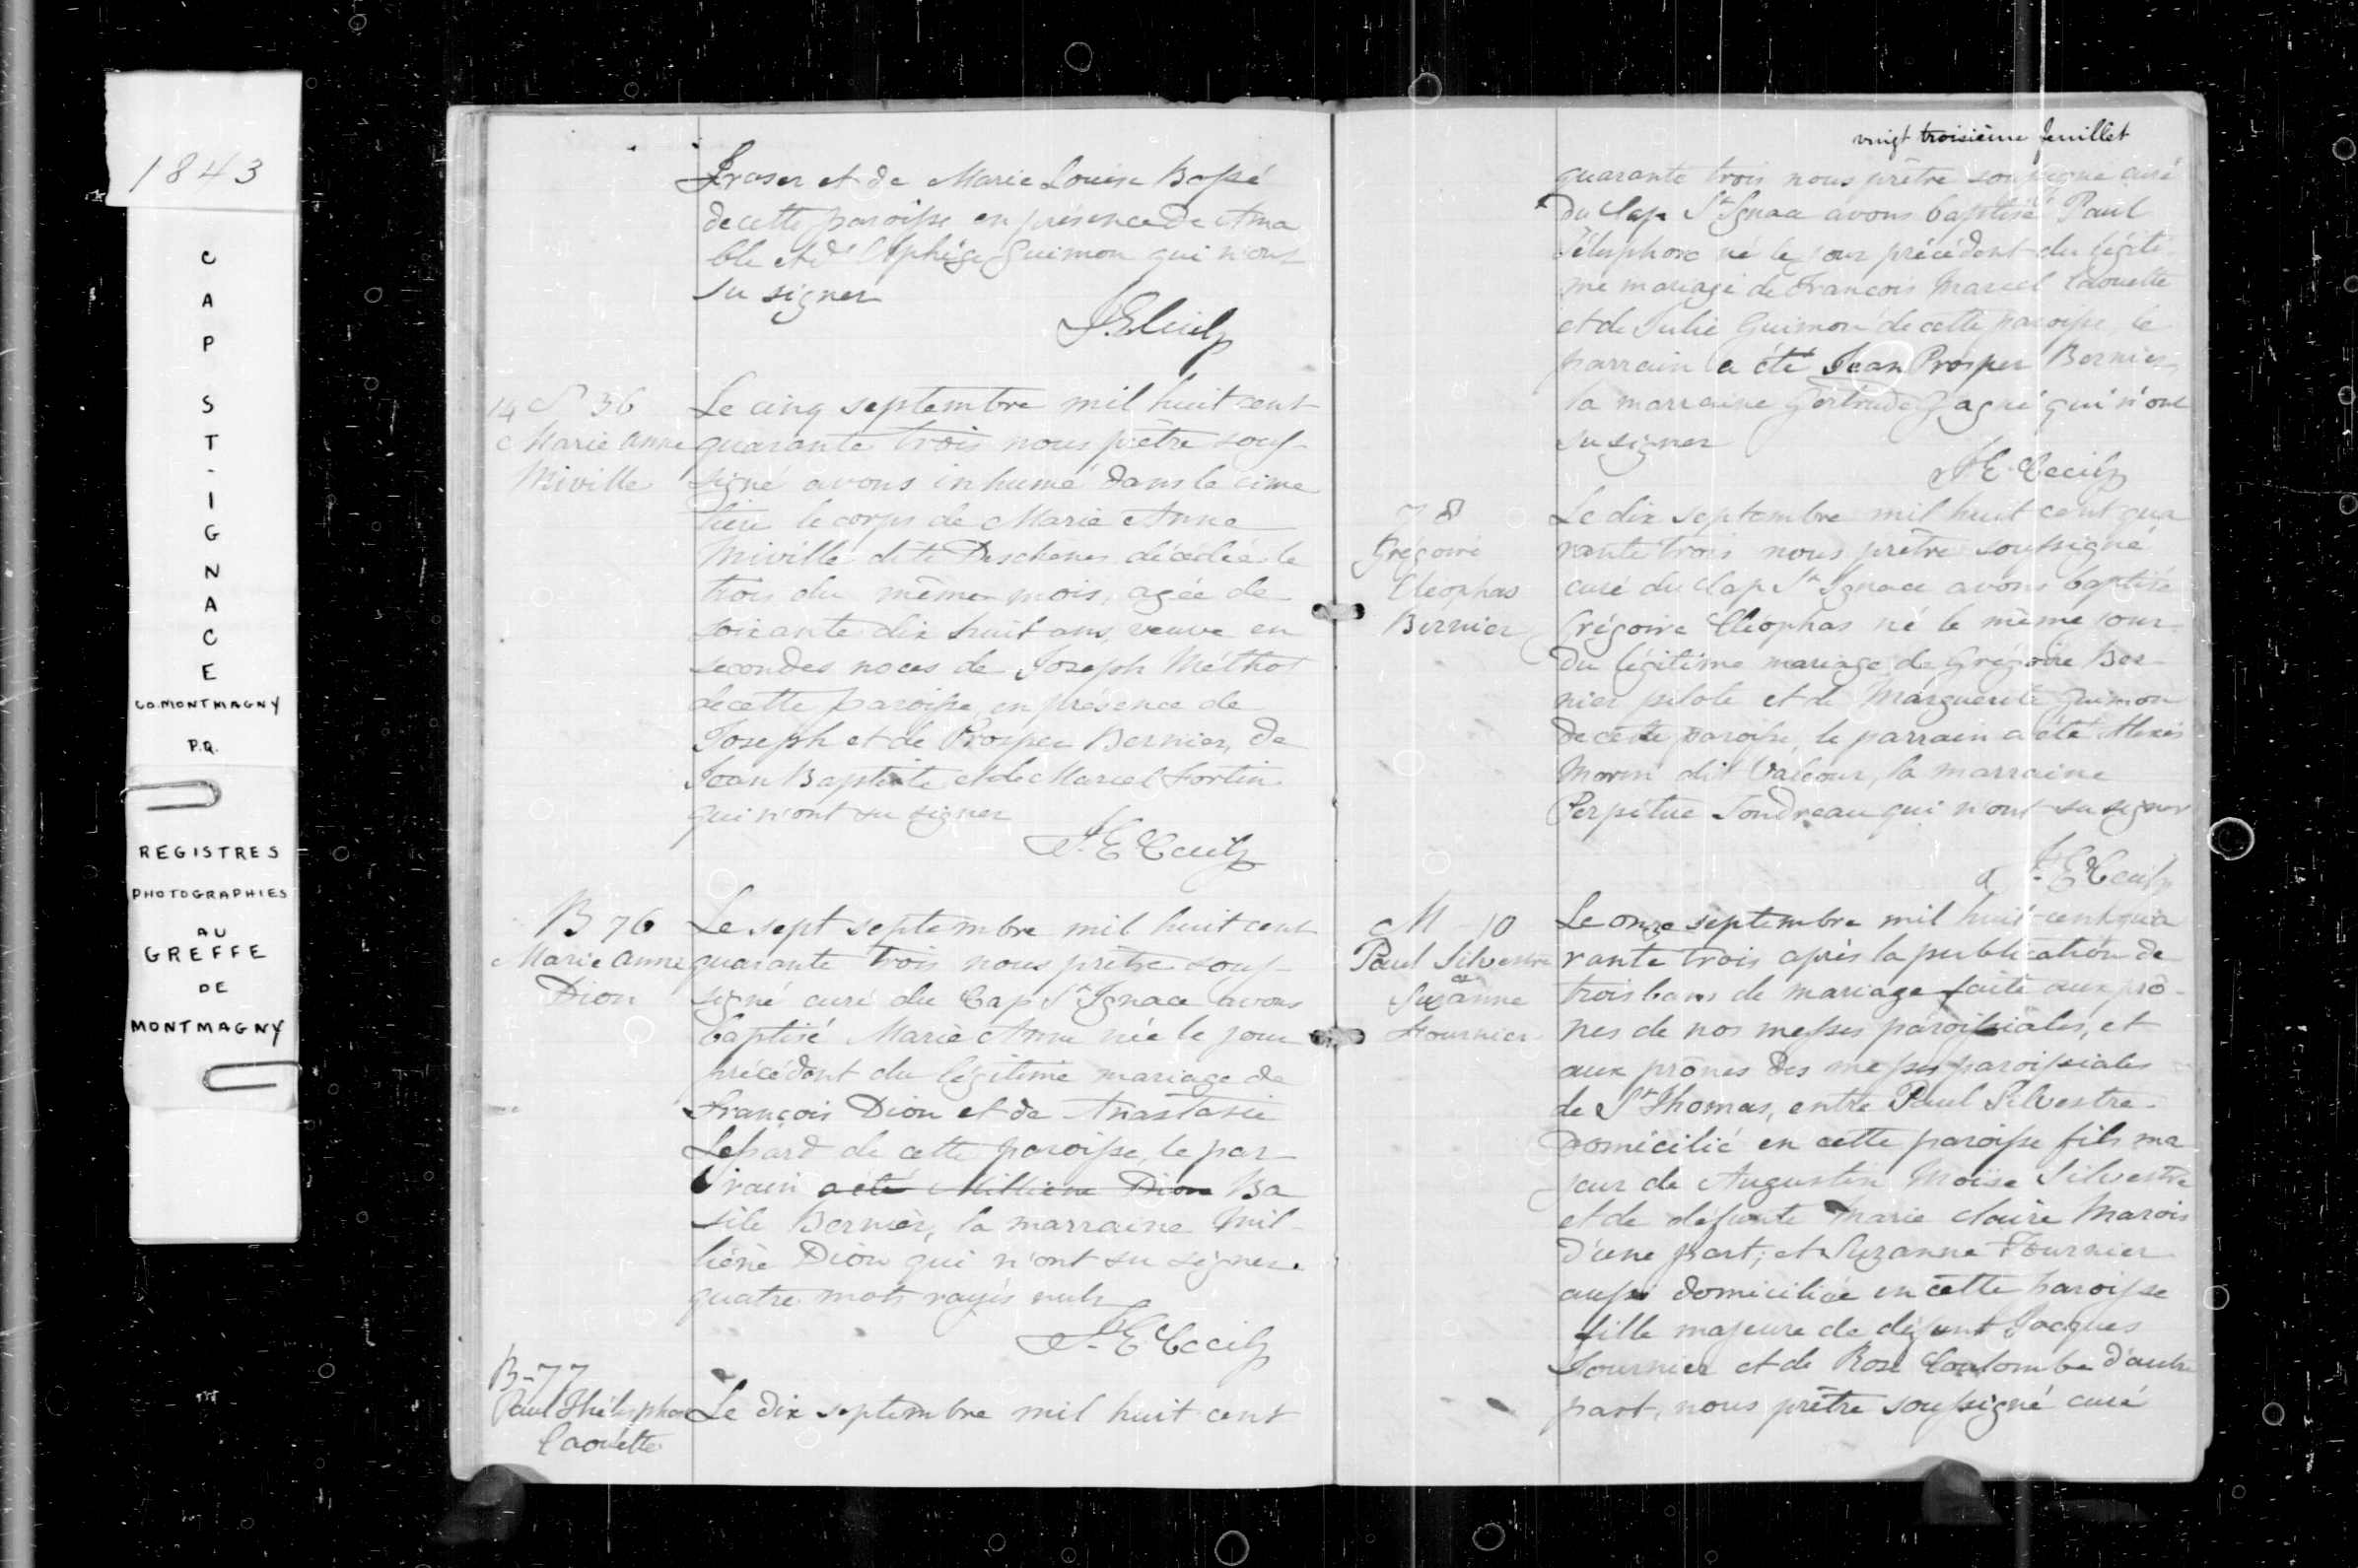 1843
CAP ST-IGNACE
CO. MONTMAGNY
P.Q.
REGISTRES
PHOTOGRAPHIES
AU
GREFFE
DE
MONTMAGNY
Fraser et de Marie Louise Bossé
de cette paroisse en présence de Ama
ble et d'Elphége Guimon qui n'ont
su signer
14 S 36
Marie Anne
Miville
Le cinq septembre mil huit cent
quarante trois nous prêtre sous-
signé avons inhumé dans le cime
tiere le corps de Marie Anne
Miville dite Deschènes décédée le
trois du même mois, agée de
soixante dix huit ans, veuve en
secondes noces de Joseph Méthot
de cette paroisse, en présence de
Joseph et de Prosper Bernier, de
Jean Baptiste et de Marcel Fortin
qui n'ont su signer
J. E. Cecil
B 76
Marie Anne
Dion
Le sept septembre mil huit cent
quarante trois nous prêtre sous-
signé curé du Cap St Ignace avons
baptisé Marie Anne née le jour
précédent du légitime mariage de
François Dion et de Anastasie
de cette paroisse, le par
rain a été Dion Ba
sile Bernier, la marraine Mil-
liène Dion qui n'ont su signer.
quatre mots rayés nuls
J. E. Cecil
B-77
Paul Thélesphor
Caouette
Le dix septembre mil huit cent
vingt troisième feuillet
quarante trois nous prêtre soussigné curé
du Cap St Ignace avons baptisé Paul
Télesphore né le jour précédent du légiti
me mariage de François Marcel Caouette
et de Julie Guimon de cette paroisse, le
parrain a été Jean Prosper Bernier
la marraine Gertrude Gagné qui n'ont
su signer
J. E. Cecil
78
Grégoire
Cleophas
Bernier
Le dix septembre mil huit cent qua
rante trois nous prêtre soussigné
curé du Cap St Ignace avons baptisé
Grégoire Cléophas né le même jour
du légitime mariage de Grégoire Ber-
nier pilote et de Marguerite Guimon
de cette paroisse, le parrain a été Alexis
Morin dit Valcour, la marraine
Perpétue Jondreau qui n'ont su signer
J. E. Cecil
M 10
Paul Silvestre
&
Suzanne
Fournier
Le onze septembre mil huit-cent qua
rante trois après la publication de
trois bans de mariage faite aux prô-
nes de nos messes paroissiales, et
aux prônes des messes paroissiales
de St Thomas, entre Paul Silvestre
domicilié en cette paroisse fils ma
jeur de Augustin Moïse Silvestre
et de défunte Marie Claire Marois
d'une part; et Suzanne Fournier
aussi domiciliée en cette paroisse
fille majeure de défunt Jacques
Fournier et de Rose Coulombe d'autre
part, nous prêtre soussigné curé